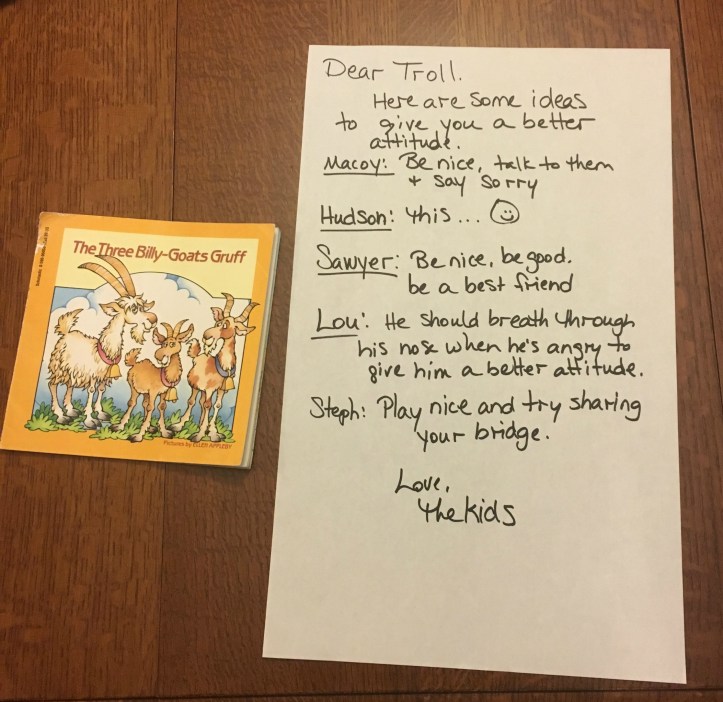 The Three Billy-Goats Gruff
Pictures by ELLEN APPLEBY
Dear Troll.
Here are some ideas
to give you a better
attitude.
Macoy: Be nice, talk to them
+ say sorry
Hudson: this... ☺
Sawyer: Be nice, be good.
be a best friend
Lou: He should breath through
his nose when he's angry to
give him a better attitude.
Steph: Play nice and try sharing
your bridge.
Love,
the kids